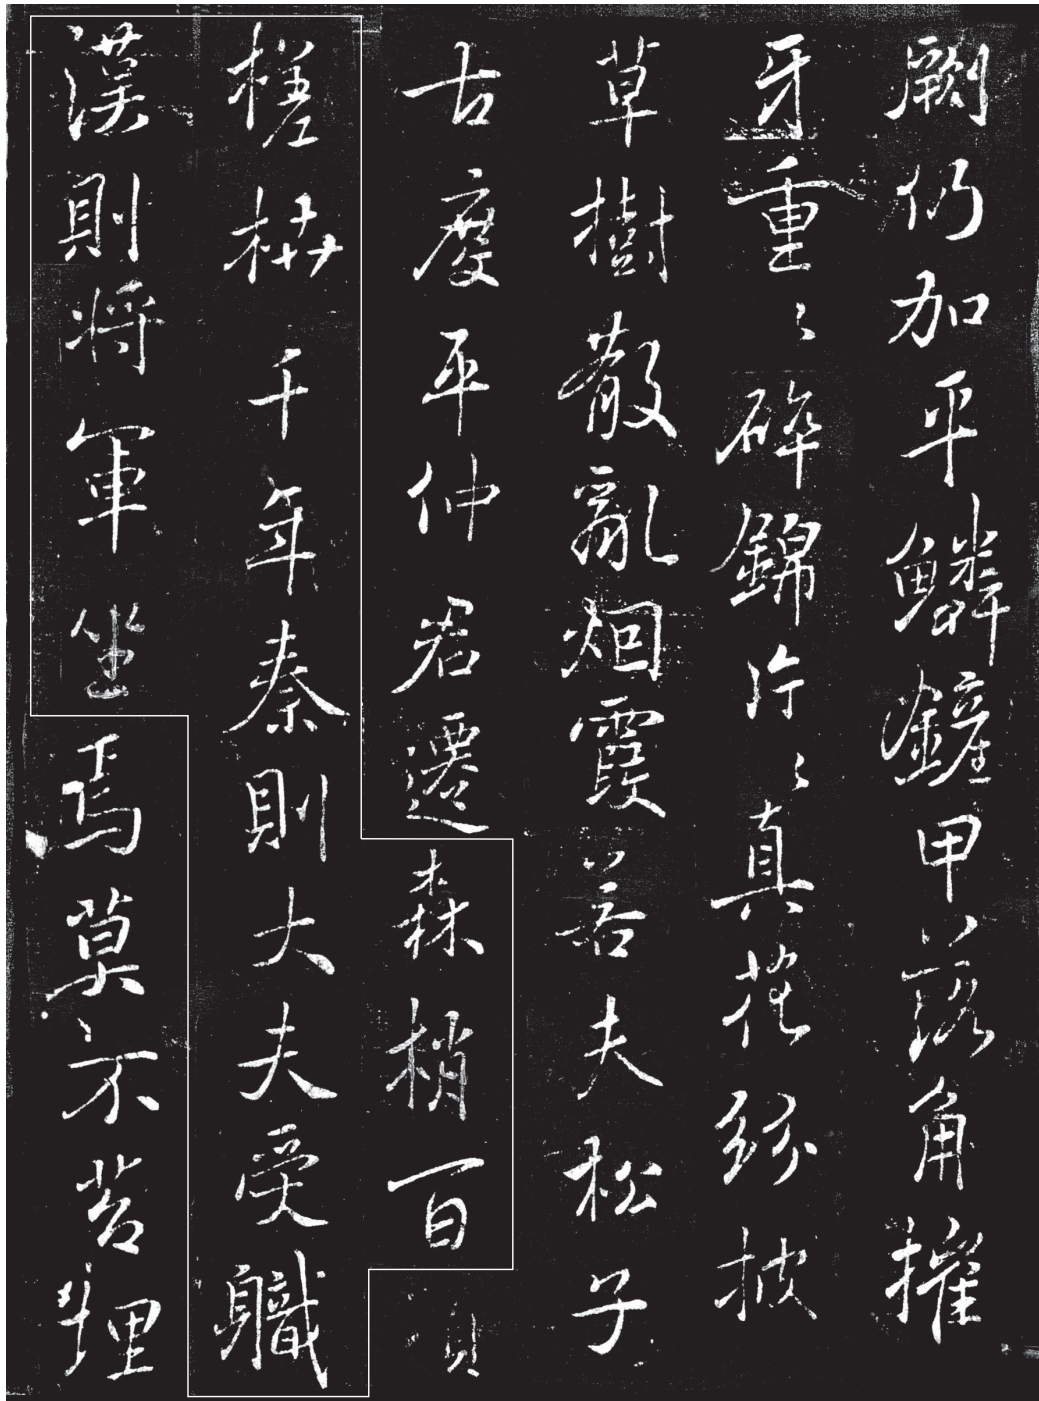 劂仍加平鱗鏟甲落角摧
牙重〻碎錦片〻真花紛披
草樹散亂烟霞若夫松子
古度平仲君遷森梢百頃
槎枿千年秦則大夫受職
漢則将軍坐焉莫不苔埋